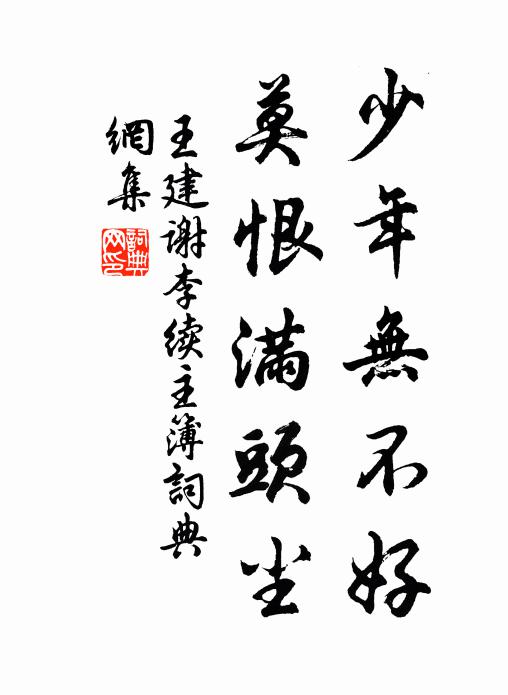 少年無不好
莫恨滿頭尘
王建谢李续主簿詞典
網集
詞典网印